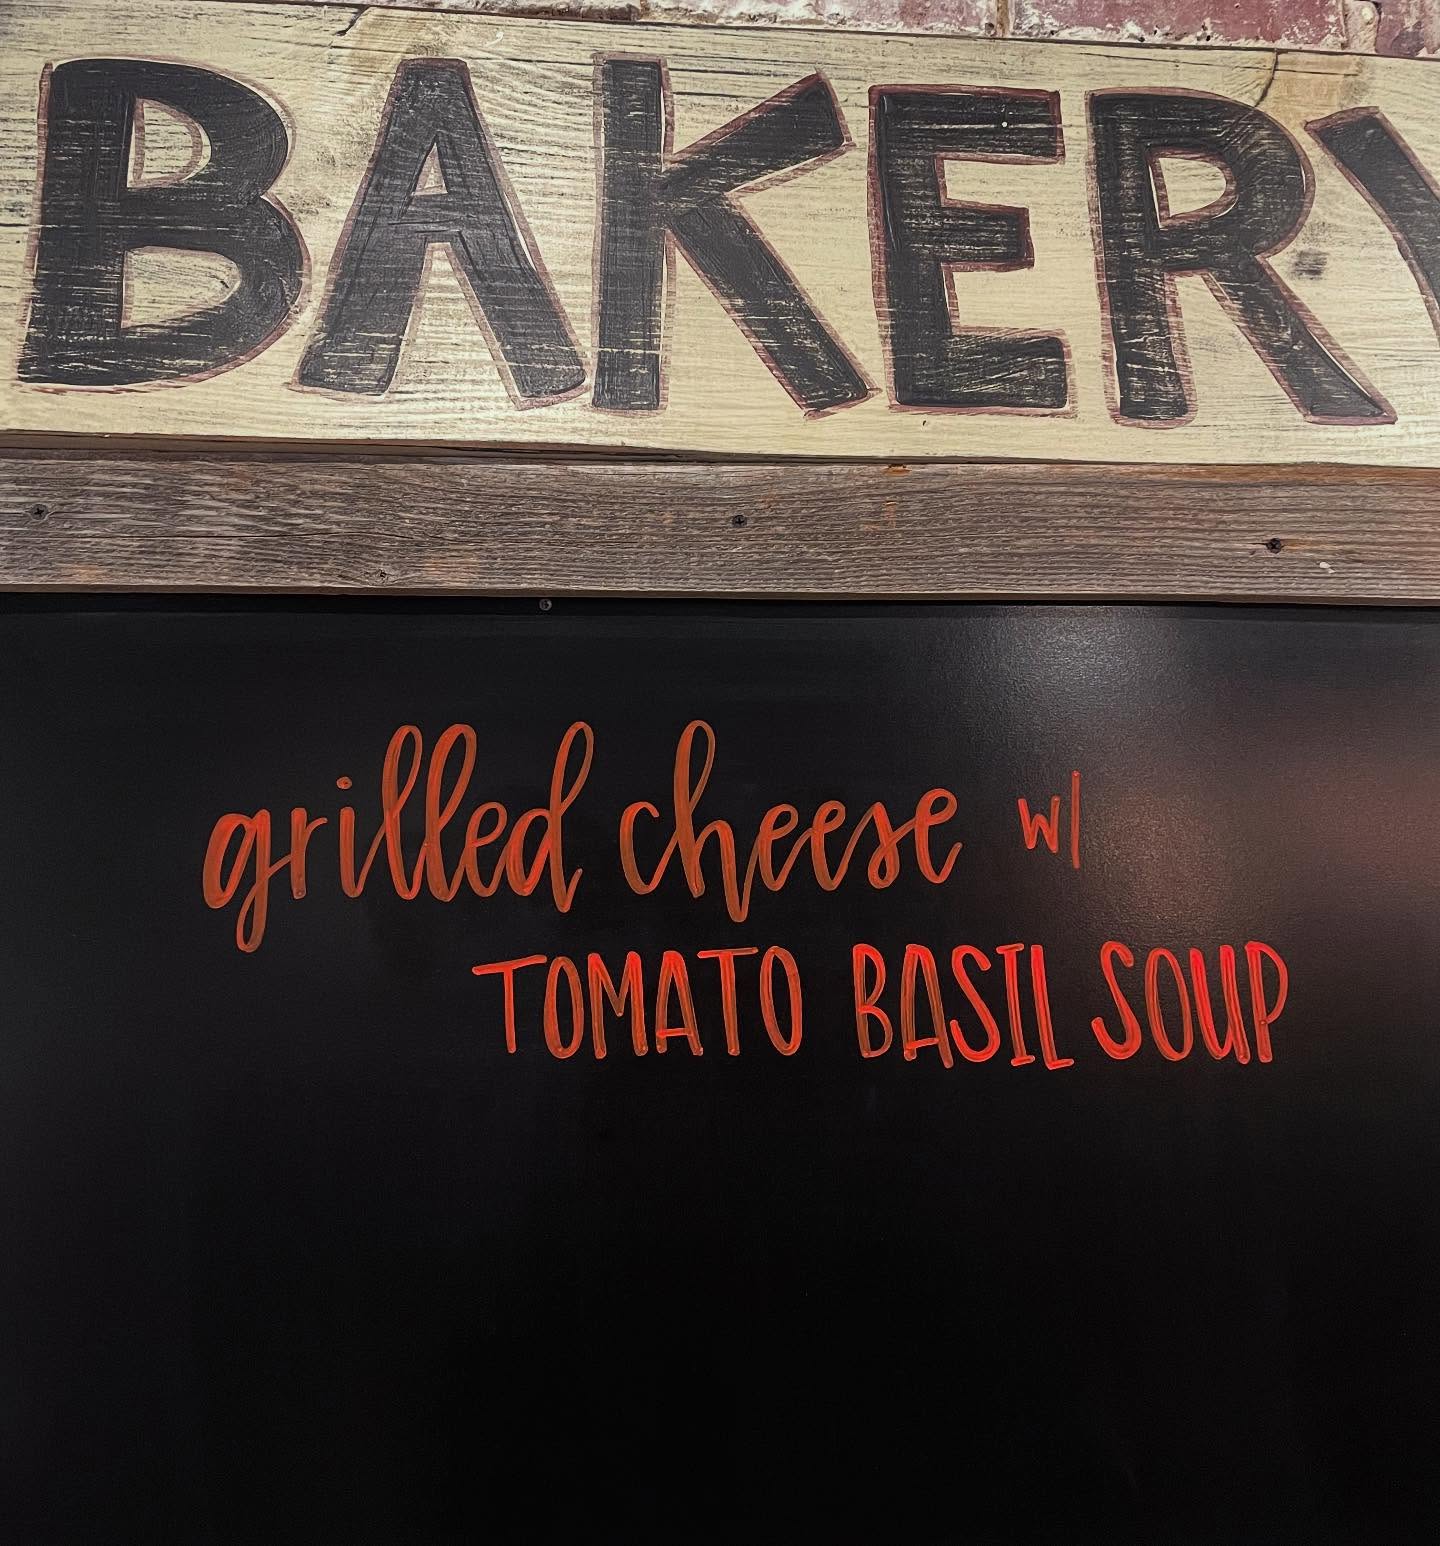 BAKERY
grilled cheese w/
TOMATO BASIL SOUP